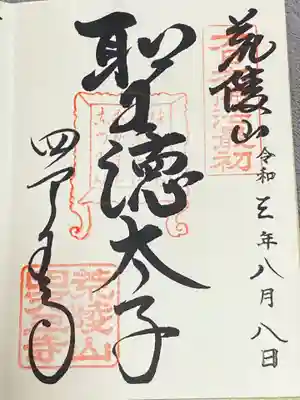 荒陵山
令和三年八月八日
聖徳太子
四天王寺
荒陵山
四天王寺